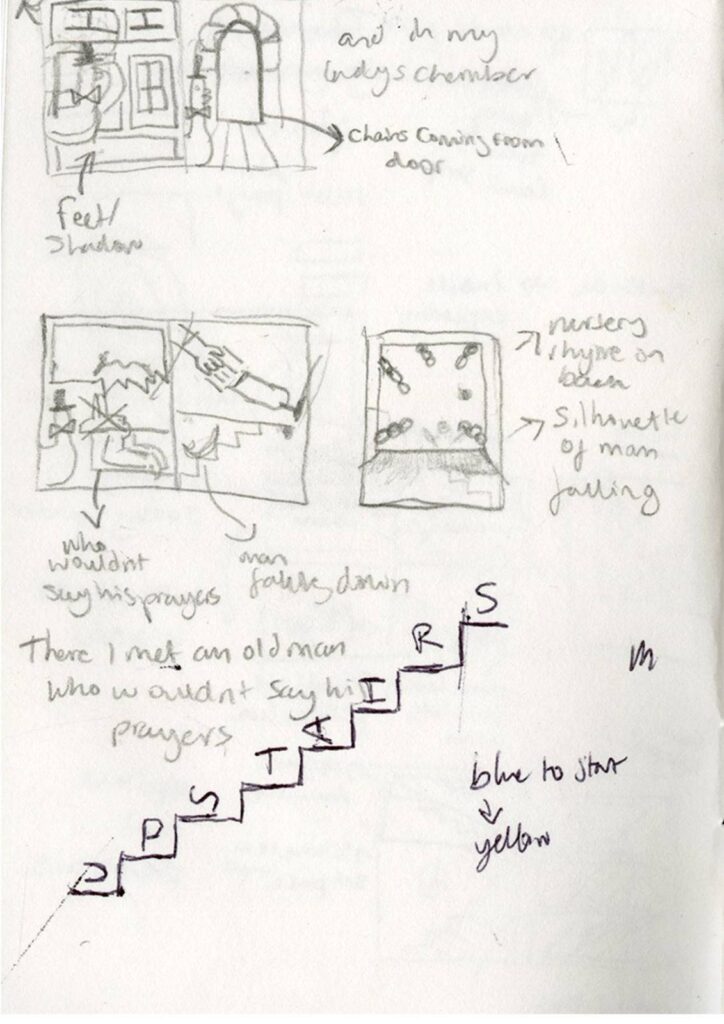 and in my
ladys chamber
coming from
door
feet/
shadow
nursery
rhyme on
back
silhouette
of man
falling
who
wouldnt
say his prayers
man
falling down
There I met an old man
who wouldnt say his
prayers
UPSTAIRS
blue to start
yellow